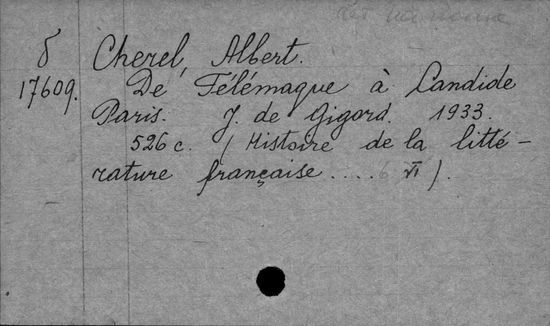 δ Cherel, Albert.
17609. De Télémaque à Candide
Paris. J. de Gigord. 1933.
526 c. (Histoire de la litté-
rature française .... 6 VI).